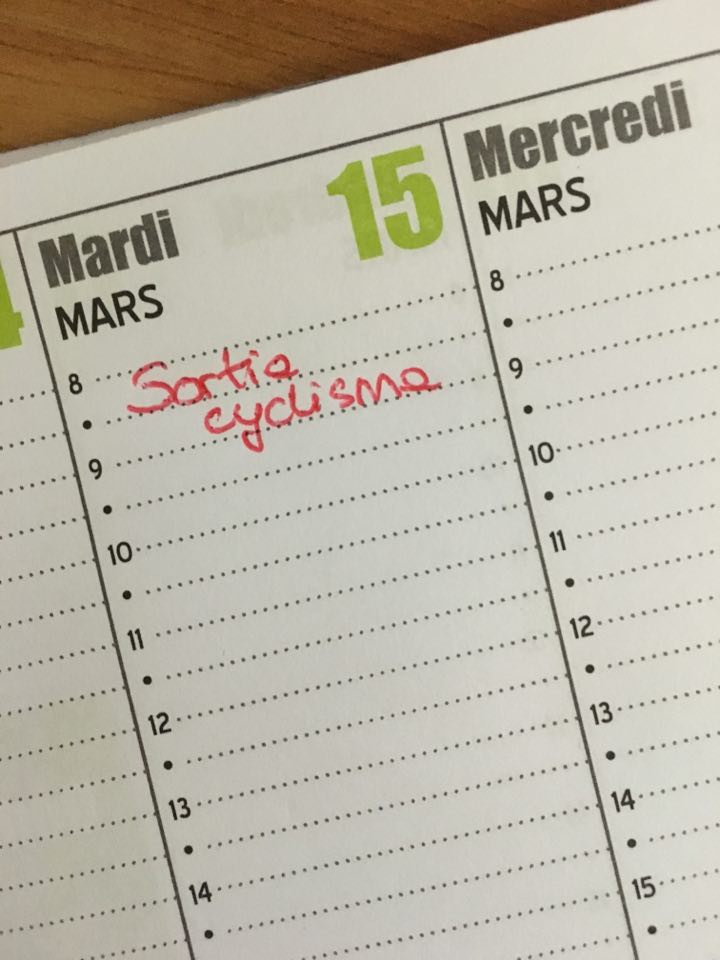 4
Mardi 15
MARS
8
Sortie
cyclisme
9
10
11
12
13
14
Mercredi
MARS
8
9
10
11
12
13
14
15